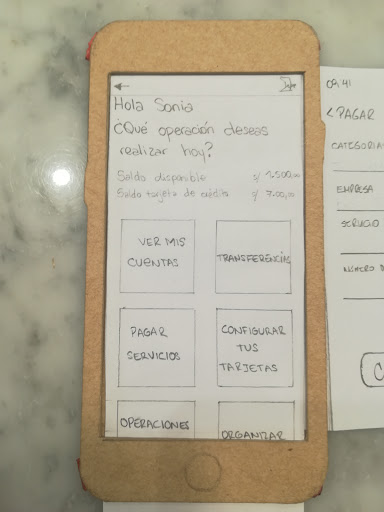 Hola Sonia
¿Qué operación deseas
realizar hoy?
Saldo disponible s/ 1,500.00
Saldo tarjeta de crédito s/ 700.00
VER MIS
CUENTAS
TRANSFERENCIAS
PAGAR
SERVICIOS
CONFIGURAR
TUS
TARJETAS
OPERACIONES
ORGANIZAR
09:41
< PAGAR
CATEGORIA
EMPRESA
SERVICIO